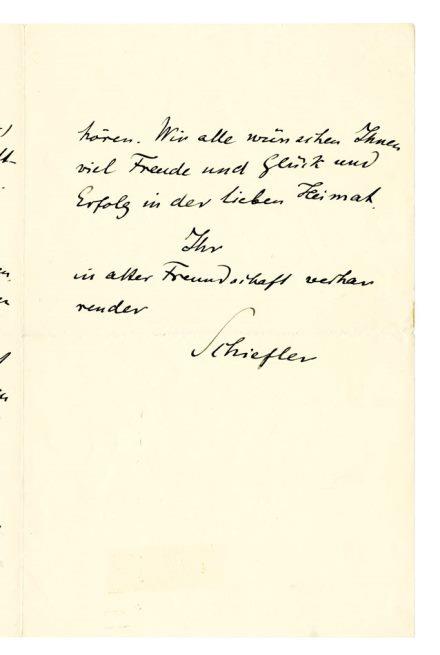 hören. Wir alle wünschen Ihnen
viel Freude und Glück und
Erfolg in der lieben Heimat.
Ihr
in alter Freundschaft verhar
render
Schiefler